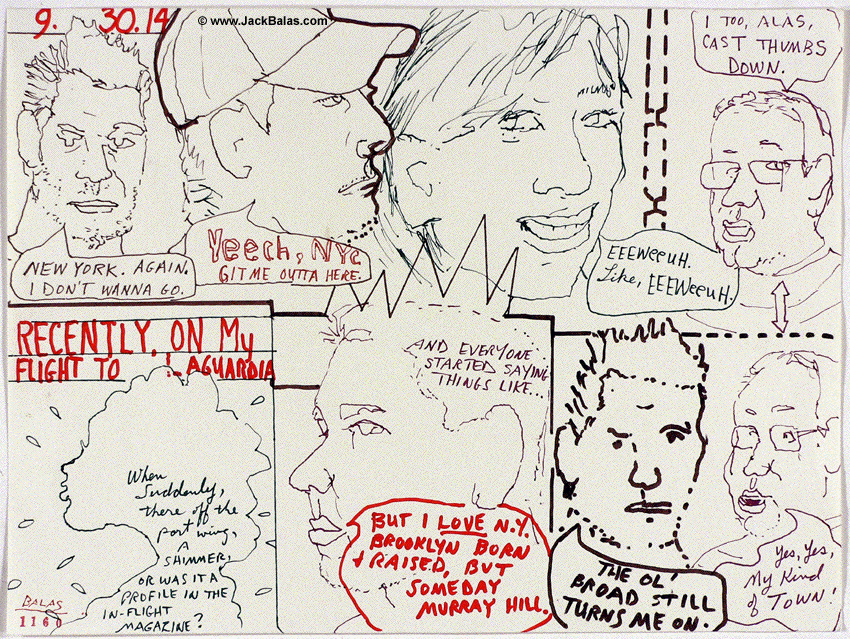 9. 30.14
© www.JackBalas.com
I TOO, ALAS,
CAST THUMBS
DOWN.
NEW YORK. AGAIN.
I DON'T WANNA GO.
Yeech, NYC
GIT ME OUTTA HERE.
EEEWeeuH.
Like, EEEWeeuH.
RECENTLY, ON My
FLIGHT TO LAGUARDIA
When
Suddenly,
there off the
port wing,
A
SHIMMER,
OR WAS IT A
PROFILE IN THE
IN-FLIGHT
MAGAZINE?
AND EVERYONE
STARTED SAYING
THINGS LIKE...
BUT I LOVE N.Y.
BROOKLYN BORN
+ RAISED, BUT
SOMEDAY
MURRAY HILL.
THE OL'
BROAD STILL
TURNS ME ON.
Yes, Yes,
My Kind
of TOWN!
BALAS
1160